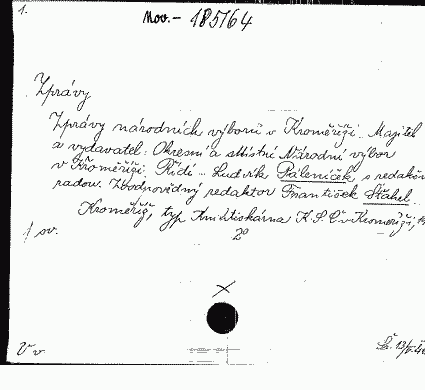 1.
Nov.- 185164
Zprávy
Zprávy národních výborů v Kroměříži. Majitel
a vydavatel: Okresní a Místní Národní výbor
v Kroměříži. Řídí.. Ludvík Páleníček s redakční
radou. Zodpovědný redaktor František Stahel.
Kroměříž, typ Knihtiskárna K.S.Č. v Kroměříži,
1 sv. 2°
V v